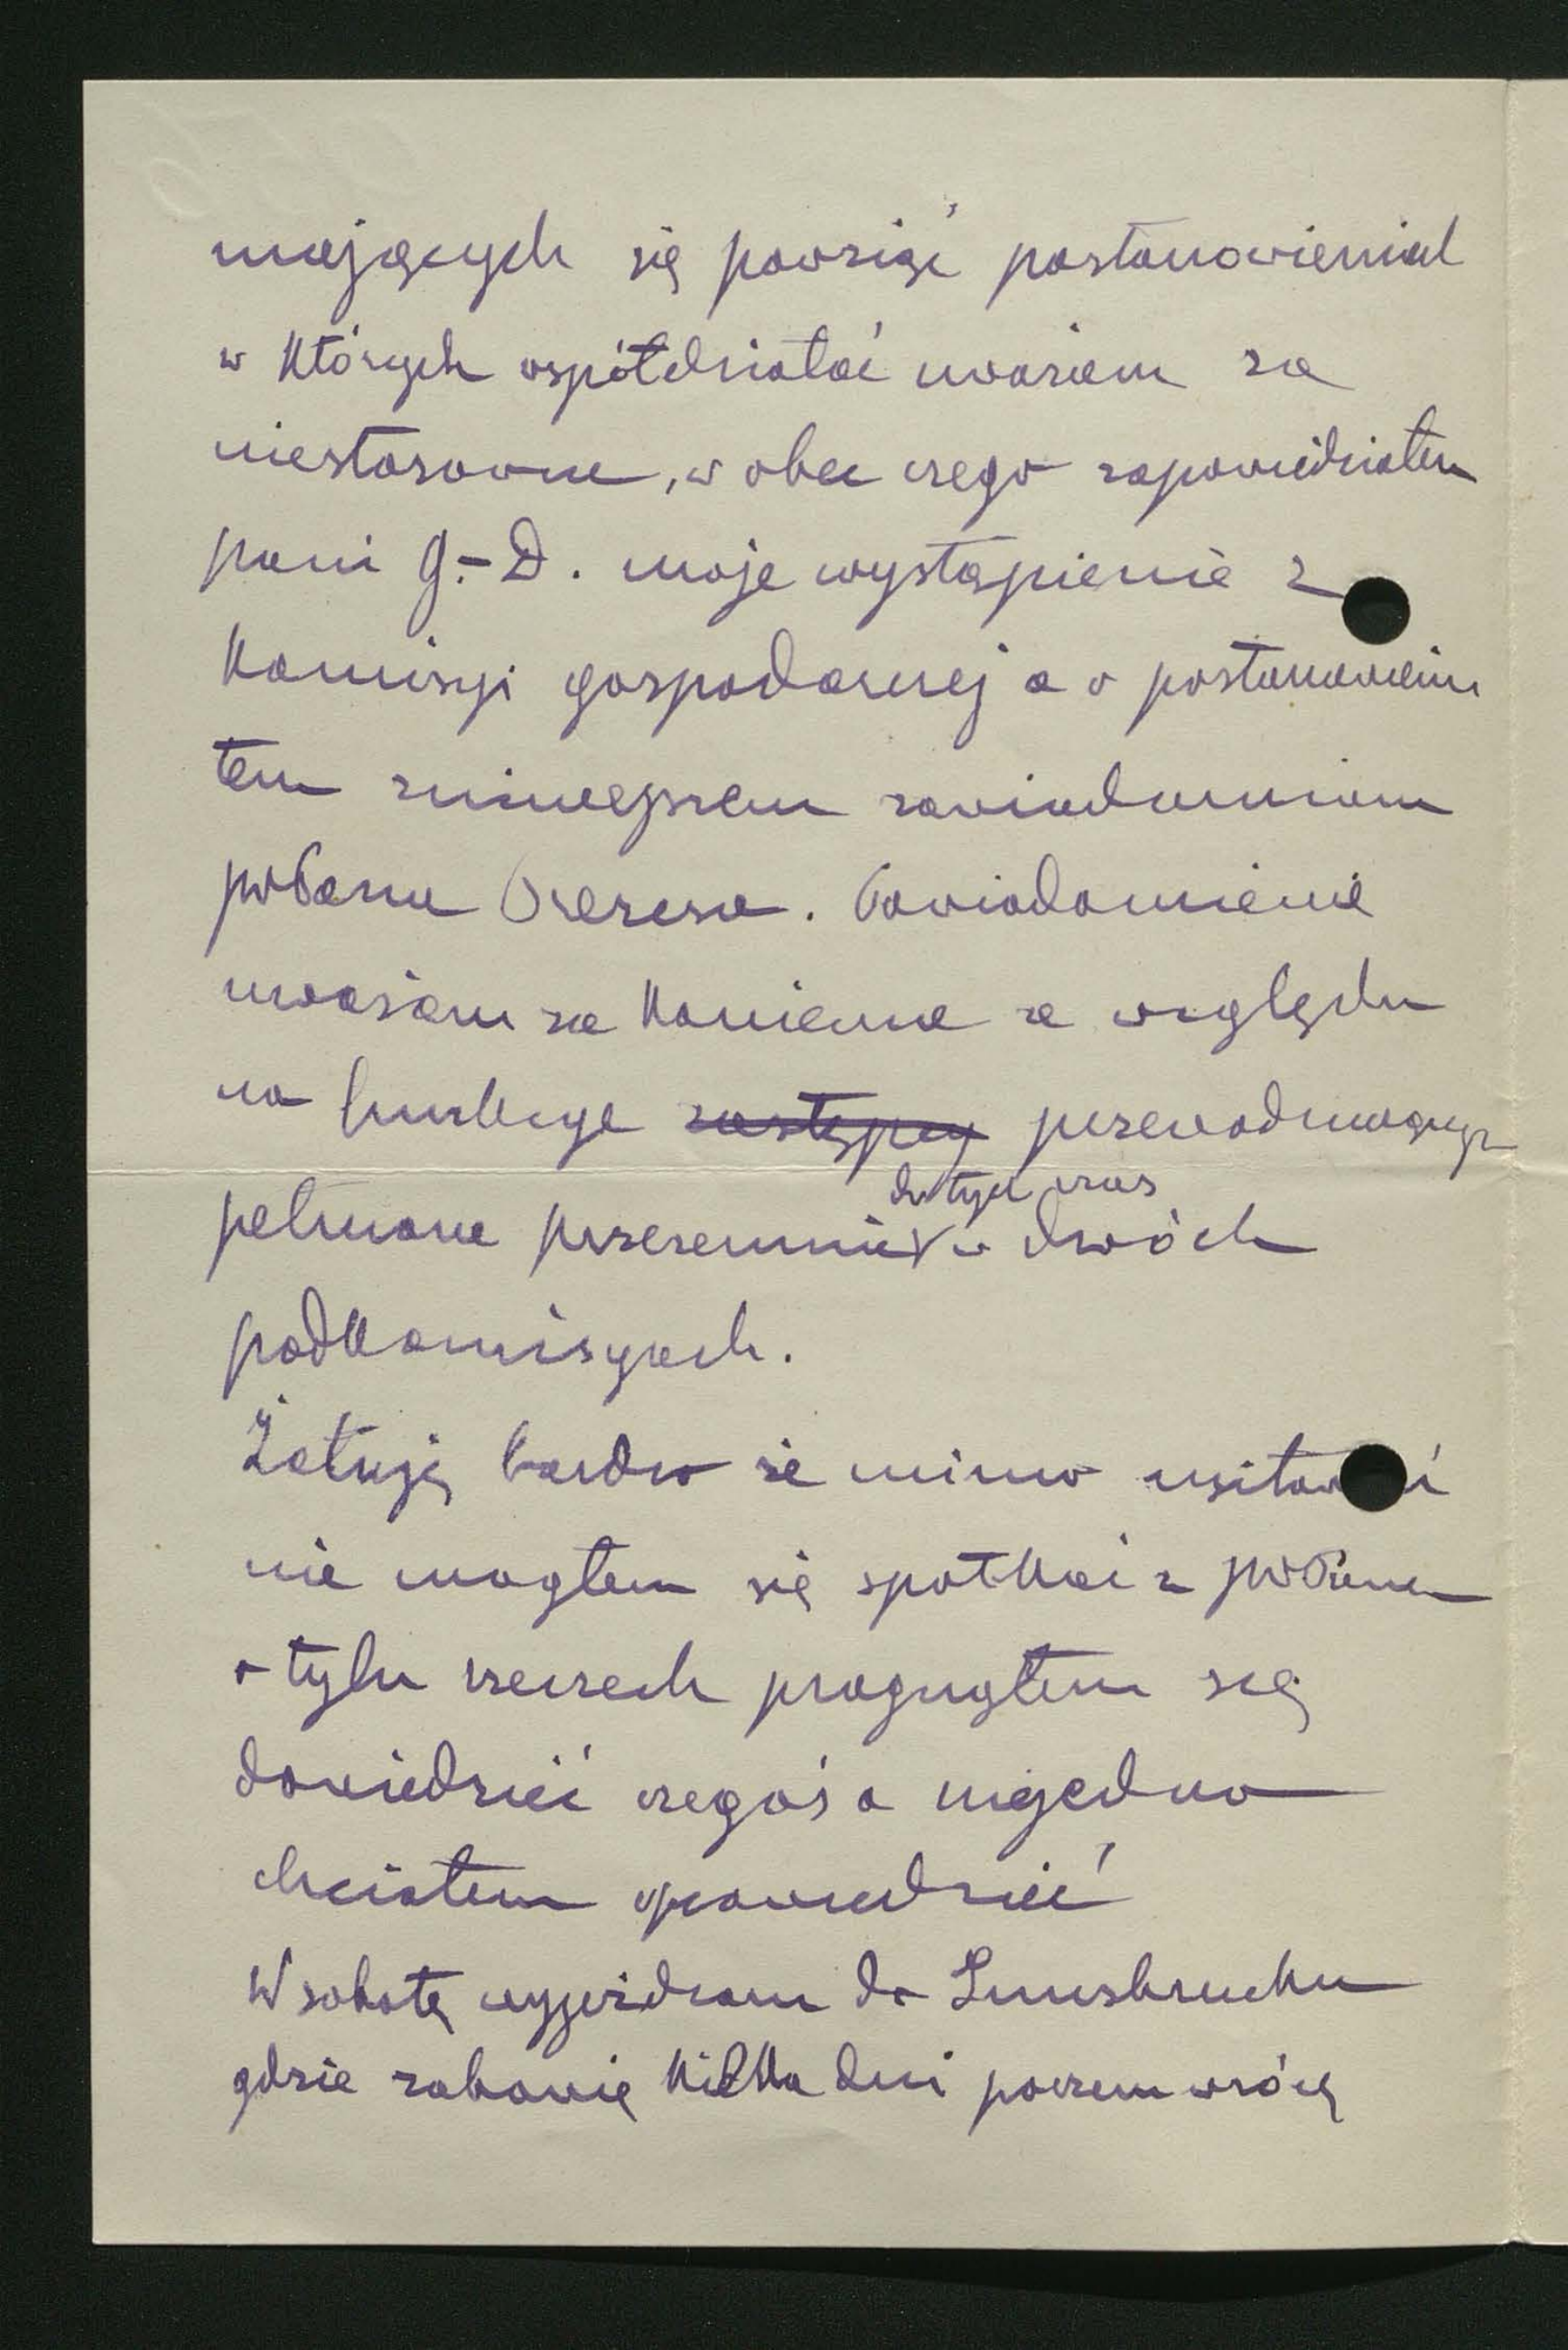 mających się powziąć postanowieniach
w których współdziałać uważam za
niestosowne, w obec czego zapowiedziałem
pani G.-D. moje wystąpienie z
Komisyi gospodarczej a o postanowieniu
tem niniejszem zawiadamiam
Pana Prezesa. Powiadomienie
uważam za konieczne ze względu
na funkcye zastępcy przewodniczącego
pełnione przezemnie do tych czas w dwóch
podkomisyach.
Żałuję bardzo że mimo usiłowań
nie mogłem się spotkać z Panem
o tylu rzeczach pragnąłem się
dowiedzieć czegoś a niejedno
chciałem opowiedzieć
W sobotę wyjeżdżam do Innsbrucku
gdzie zabawię kilka dni poczem wrócę